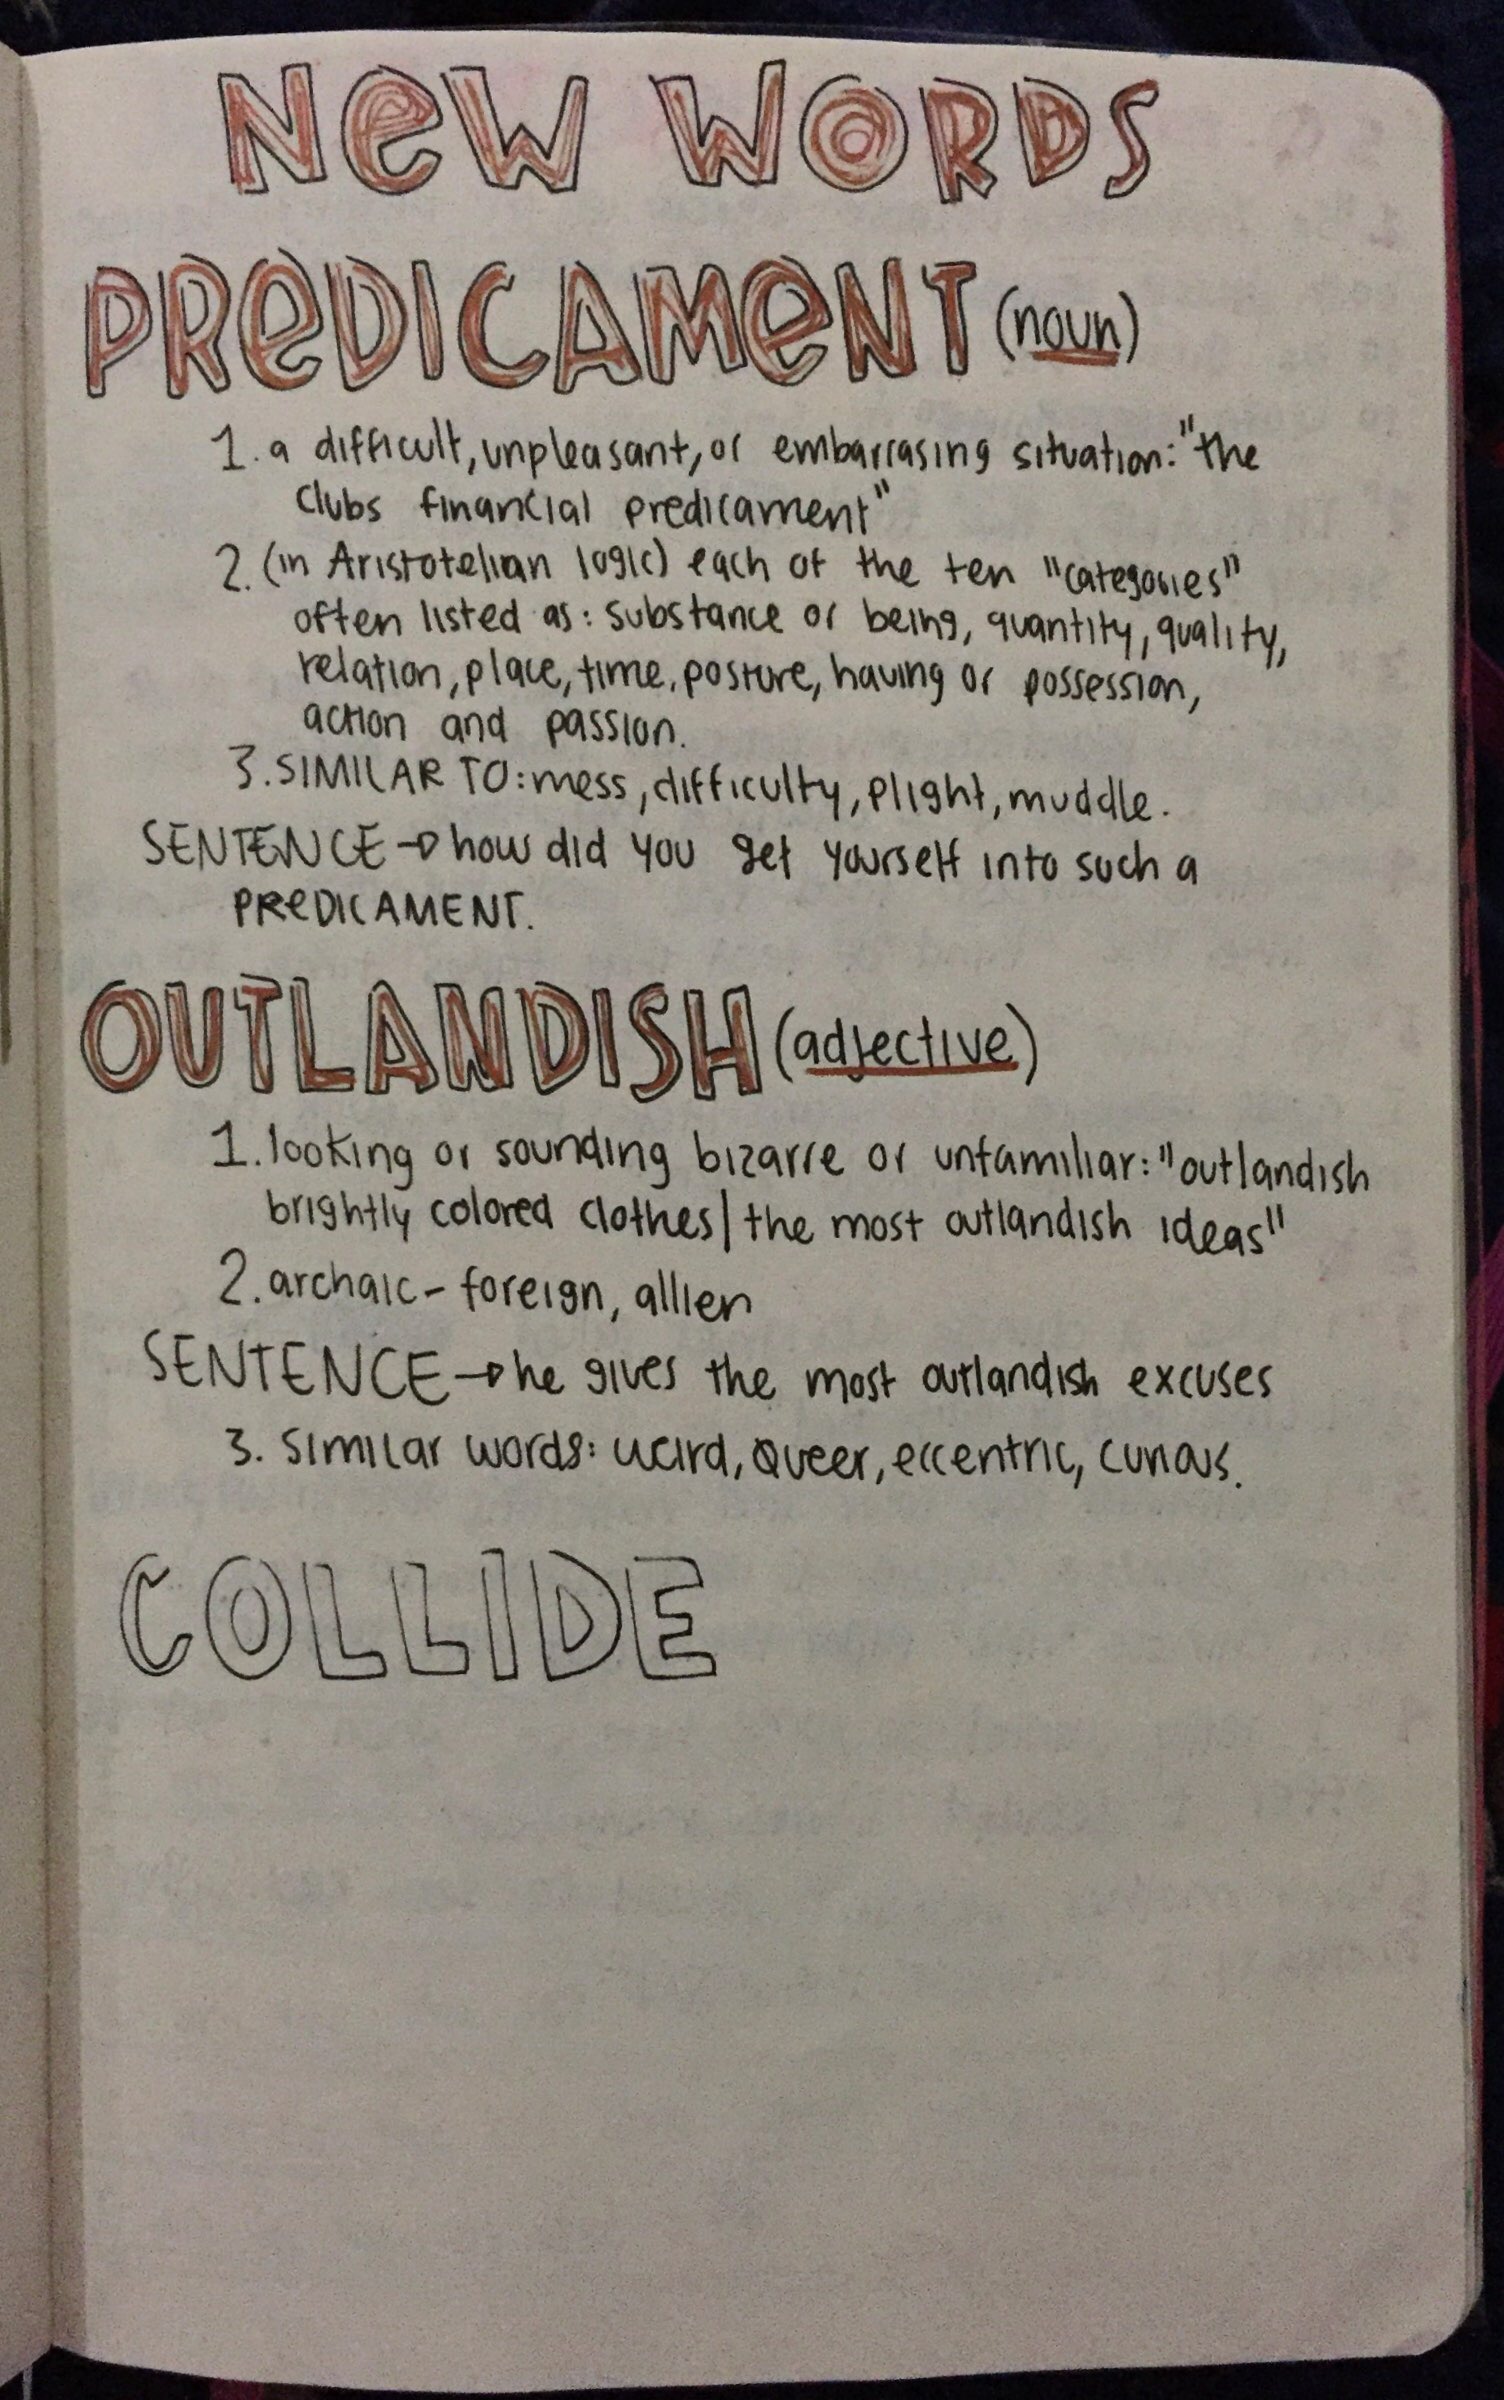 NeW WORDS
PReDICAMeNT (noun)
1. a difficult, unpleasant, or embarrasing situation: "the
clubs financial predicament"
2. (in Aristotelian logic) each of the ten "categories"
often listed as: substance or being, quantity, quality,
relation, place, time, posture, having or possession,
action and passion.
3. SIMILAR TO: mess, difficulty, plight, muddle.
SENTENCE → how did you get yourself into such a
PReDICAMENT.
OUTLANDISH (adjective)
1. looking or sounding bizarre or unfamiliar: "outlandish
brightly colored clothes | the most outlandish ideas"
2. archaic - foreign, allien
SENTENCE → he gives the most outlandish excuses
3. similar words: weird, queer, eccentric, curious.
COLLIDE